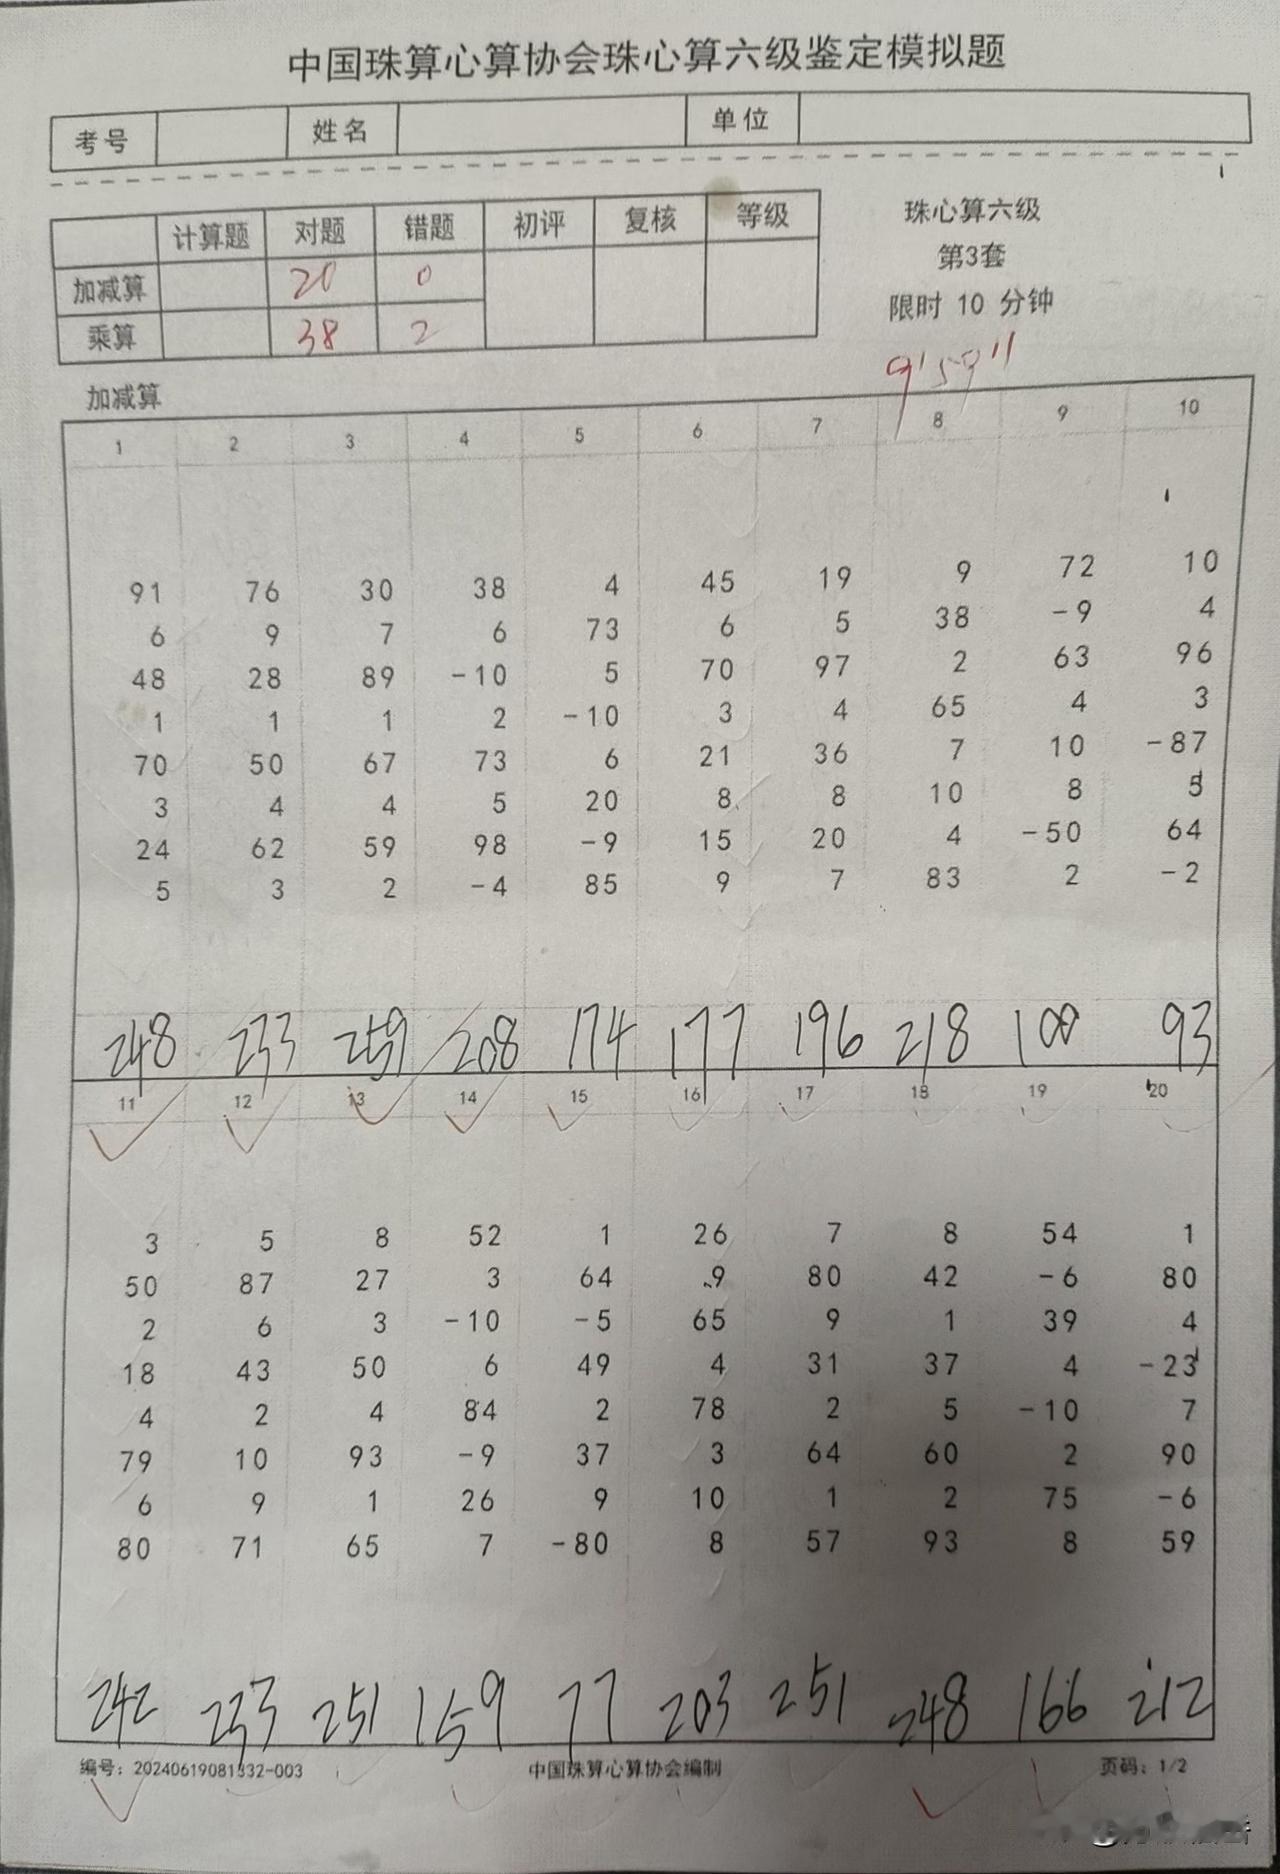 中国珠算心算协会珠心算六级鉴定模拟题
考号 姓名 单位
计算题 对题 错题 初评 复核 等级
加减算 20 0
乘算 38 2
珠心算六级
第3套
限时 10 分钟
9'59"
加减算
1 2 3 4 5 6 7 8 9 10
91 76 30 38 4 45 19 9 72 10
6 9 7 6 73 6 5 38 -9 4
48 28 89 -10 5 70 97 2 63 96
1 1 1 2 -10 3 4 65 4 3
70 50 67 73 6 21 36 7 10 -87
3 4 4 5 20 8 8 10 8 5
24 62 59 98 -9 15 20 4 -50 64
5 3 2 -4 85 9 7 83 2 -2
248 233 259 208 174 177 196 218 100 93
11 12 13 14 15 16 17 18 19 20
3 5 8 52 1 26 7 8 54 1
50 87 27 3 64 9 80 42 -6 80
2 6 3 -10 -5 65 9 1 39 4
18 43 50 6 49 4 31 37 4 -23
4 2 4 84 2 78 2 5 -10 7
79 10 93 -9 37 3 64 60 2 90
6 9 1 26 9 10 1 2 75 -6
80 71 65 7 -80 8 57 93 8 59
242 233 251 159 77 203 251 248 166 212
编号：20240619081332-003 中国珠算心算协会编制 页码：1/2